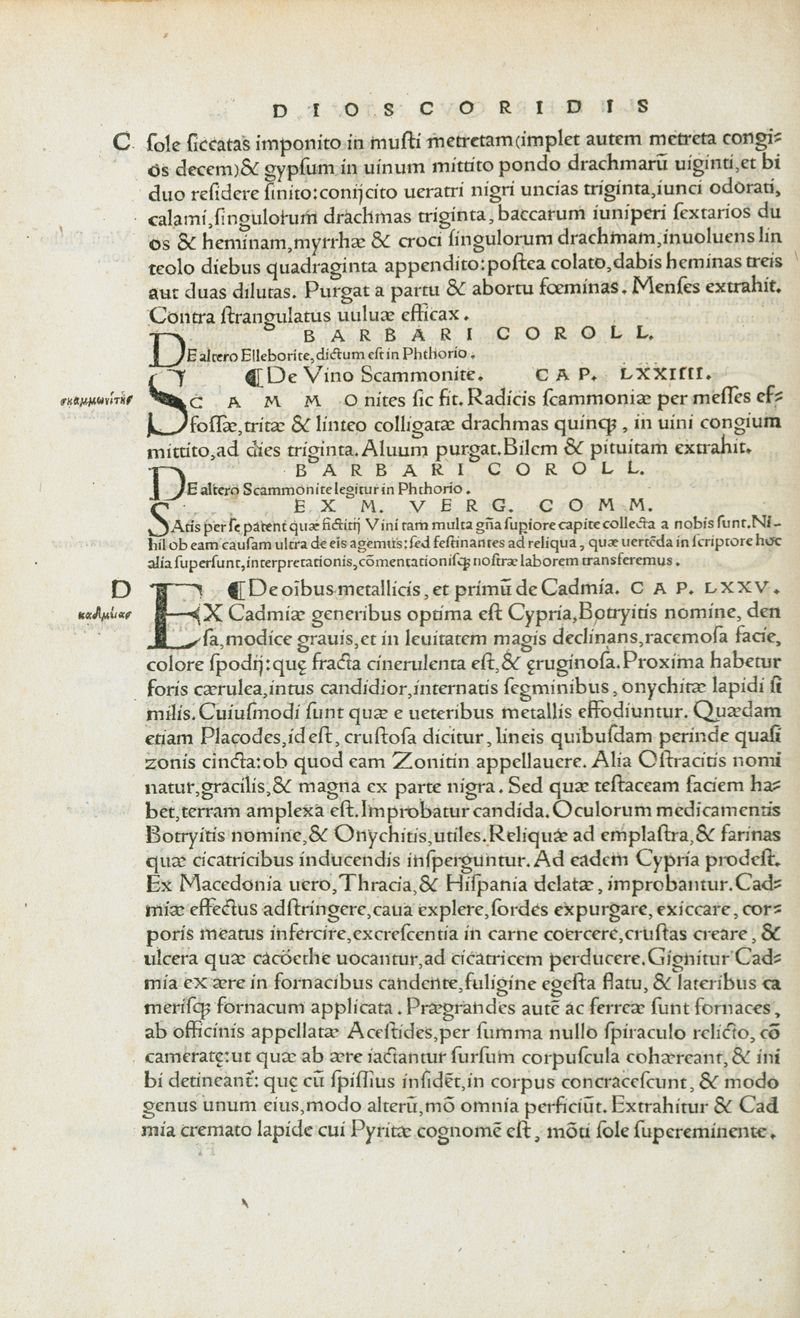 DIOSCORIDIS
C ſole ſiccatas imponito in muſti metretam(implet autem metreta congi⸗
os decem)& gypſum in uinum mittito pondo drachmarū uiginti,et bi
duo reſidere ſinito:conijcito ueratri nigri uncias triginta,iunci odorati,
calami,ſingulorum drachmas triginta,baccarum iuniperi ſextarios du
os & heminam,myrrhæ & croci ſingulorum drachmam,inuoluens lin
teolo diebus quadraginta appendito:poſtea colato,dabis heminas treis
aut duas dilutas. Purgat a partu & abortu fœminas. Menſes extrahit.
Contra ſtrangulatus uuluæ efficax.
BARBARI COROLL.
DE altero Elleborite,dictum eſt in Phthorio.
¶De Vino Scammonite. CAP. LXXIIII.
σκαμμωνίτης
SCAMMOnites ſic fit. Radicis ſcammoniæ per meſſes ef⸗
foſſæ,tritæ & linteo colligatæ drachmas quinqꝫ, in uini congium
mittito,ad dies triginta. Aluum purgat. Bilem & pituitam extrahit.
BARBARI COROLL.
DE altero Scammonite legitur in Phthorio.
EX M. VERG. COMM.
SAtis per ſe patent quæ fictitij Vini tam multa gn̄a ſupiore capite collecta a nobis ſunt. Ni-
hil ob eam cauſam ultra de eis agemus: ſed feſtinantes ad reliqua, quæ uertēda in ſcriptore hoc
alia ſuperſunt,interpretationis,cōmentationiſqꝫ noſtræ laborem transferemus.
D ¶De oībus metallicis, et primū de Cadmia. CAP. LXXV.
καδμίας
EX Cadmiæ generibus optima eſt Cypria,Botryitis nomine, den
ſa,modice grauis,et in leuitatem magis declinans,racemoſa facie,
colore ſpodij:quę fracta cinerulenta eſt,& ęruginoſa. Proxima habetur
foris cærulea,intus candidior,internatis ſegminibus, onychitæ lapidi ſi
milis. Cuiuſmodi ſunt quæ e ueteribus metallis effodiuntur. Quædam
etiam Placodes,id eſt, cruſtoſa dicitur, lineis quibuſdam perinde quaſi
zonis cincta:ob quod eam Zonitin appellauere. Alia Oſtracitis nomi
natur,gracilis,& magna ex parte nigra. Sed quæ teſtaceam faciem ha⸗
bet,terram amplexa eſt. Improbatur candida. Oculorum medicamentis
Botryitis nomine,& Onychitis,utiles. Reliquæ ad emplaſtra,& farinas
quæ cicatricibus inducendis inſperguntur. Ad eadem Cypria prodeſt.
Ex Macedonia uero,Thracia,& Hiſpania delatæ, improbantur. Cad⸗
miæ effectus adſtringere,caua explere,ſordes expurgare, exiccare, cor⸗
poris meatus infercire,excreſcentia in carne coercere,cruſtas creare, &
ulcera quæ cacoethe uocantur,ad cicatricem perducere. Gignitur Cad⸗
mia ex ære in fornacibus candente,fuligine egeſta flatu, & lateribus ca
meriſqꝫ fornacum applicata. Prægrandes autē ac ferreæ ſunt fornaces,
ab officinis appellatæ Aceſtides,per ſumma nullo ſpiraculo relicto, cō
cameratę:ut quæ ab ære iactantur ſurſum corpuſcula cohæreant, & ini
bi detineant̄: quę cū ſpiſſius inſidēt,in corpus concraceſcunt, & modo
genus unum eius,modo alterū,mō omnia perficiūt. Extrahitur & Cad
mia cremato lapide cui Pyritæ cognomē eſt, mōti ſole ſupereminente.